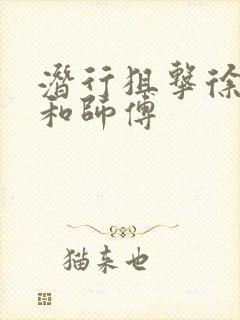 潛行狙擊徐
和師傅
猫来也